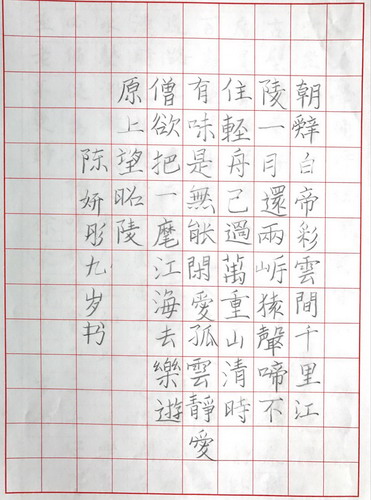 朝辤白帝彩雲間千里江
陵一月還兩岍猿聲啼不
住輕舟己過萬重山清時
有味是無能閑愛孤雲靜愛
僧欲把一麾江海去樂遊
原上望昭陵
陈娇彤九岁书